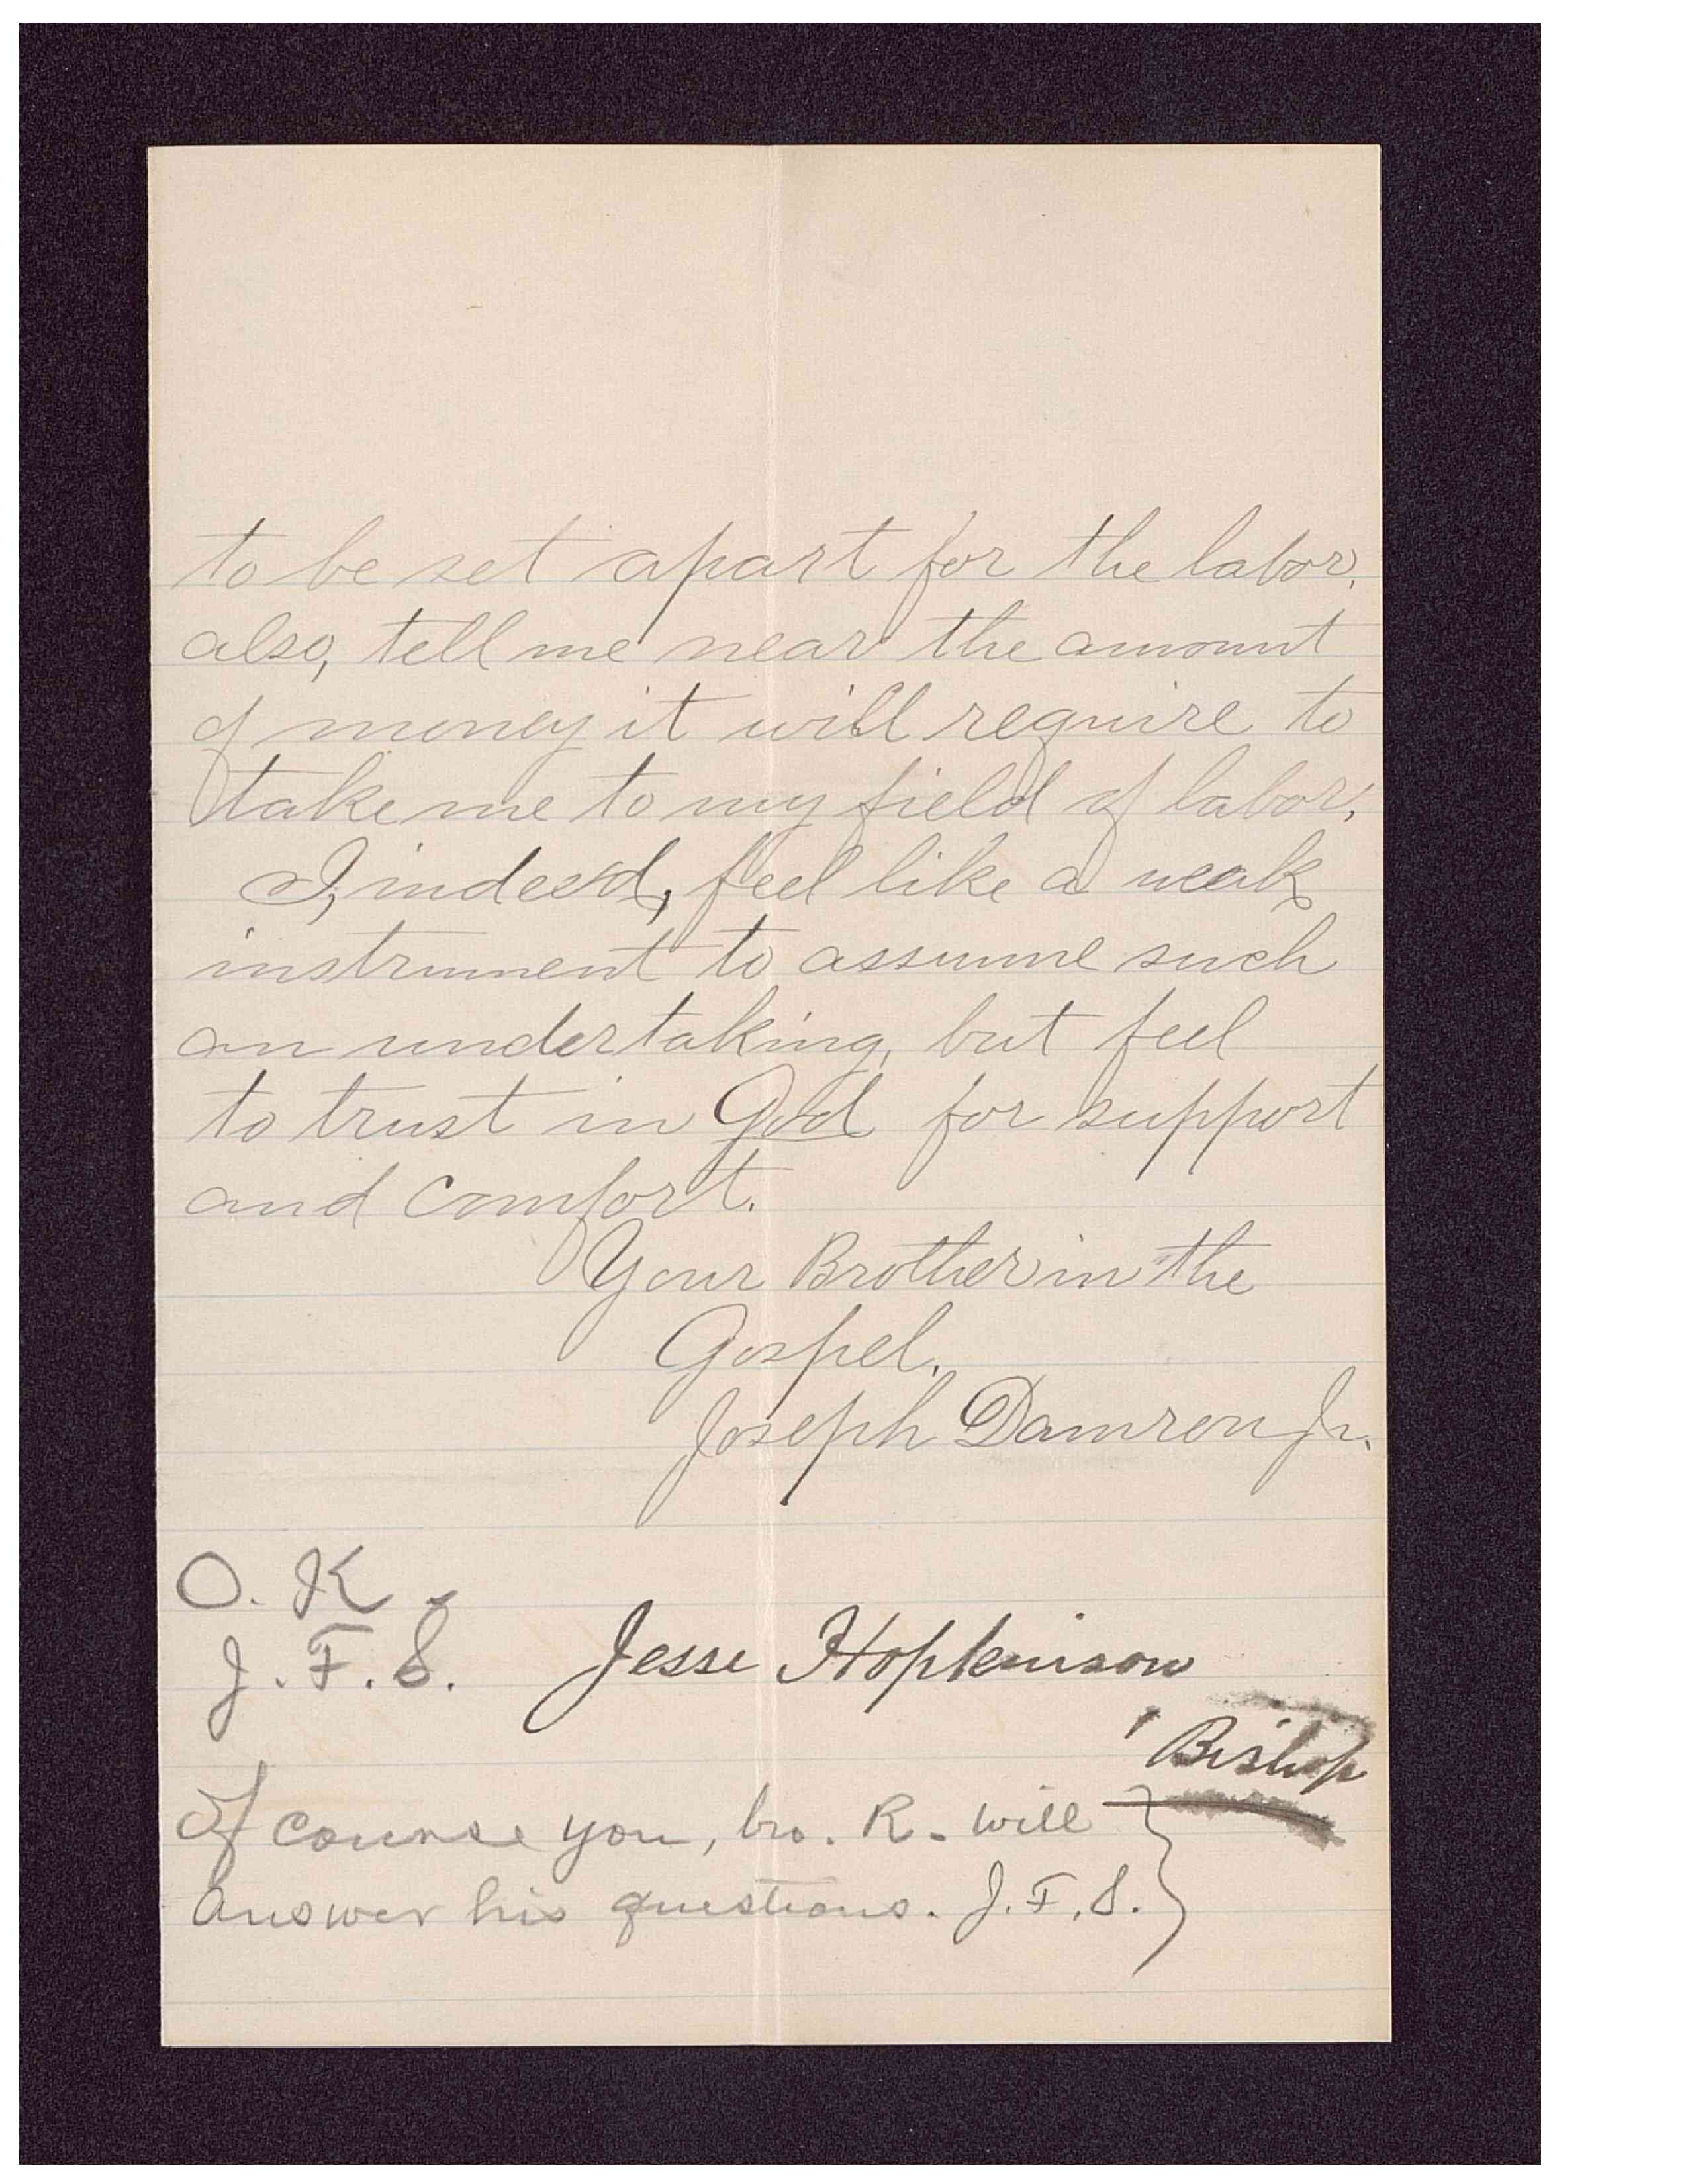 to be set apart for the labor.
also, tell me near the amount
of money it will require to
take me to my field of labor.
I, indeed, feel like a weak
instrument to assume such
an undertaking, but feel
to trust in God for support
and comfort.
Your Brother in the
Gospel.
Joseph Damron Jr.
O. K.
J. F. S.
Jesse Hopkinson
Bishop
Of course you, bro. R. will
answer his questions. J. F. S.